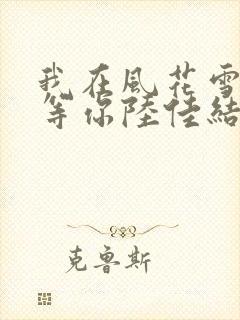 我在風花雪
等你陸佳結
克魯斯